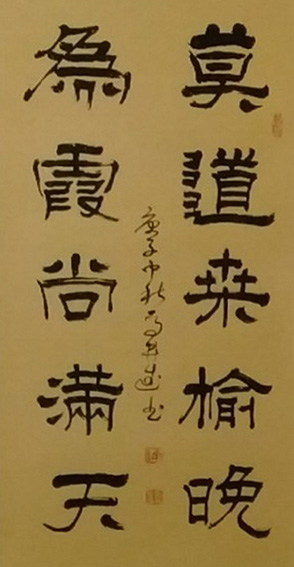 莫道桑榆晚
為霞尚滿天
庚子中秋
書